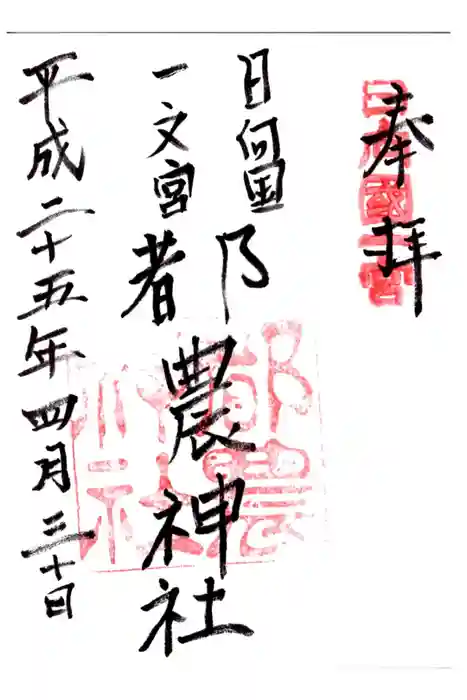 奉拝
日向國一宮
日向国
一之宮
都農神社
都農
神社
平成二十五年四月三十日